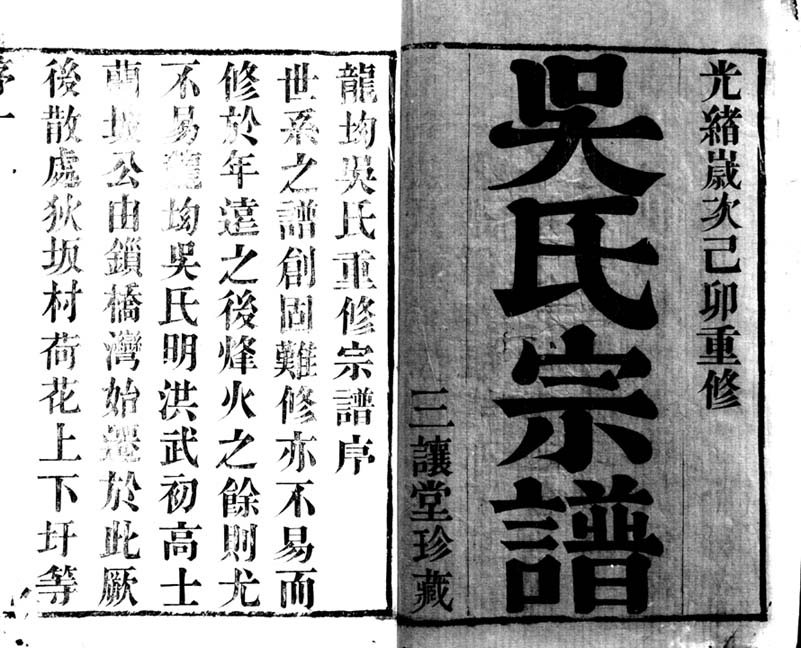 光緒歲次己卯重修
吳氏宗譜
三讓堂珍藏
龍均吳氏重修宗譜序
世系之譜創固難修亦不易而
修於年遠之後烽火之餘則尤
不易龍均吳氏明洪武初高士
蘭坡公由鎖橋灣始遷於此厥
後散處狄坂村荷花上下圩等
序一